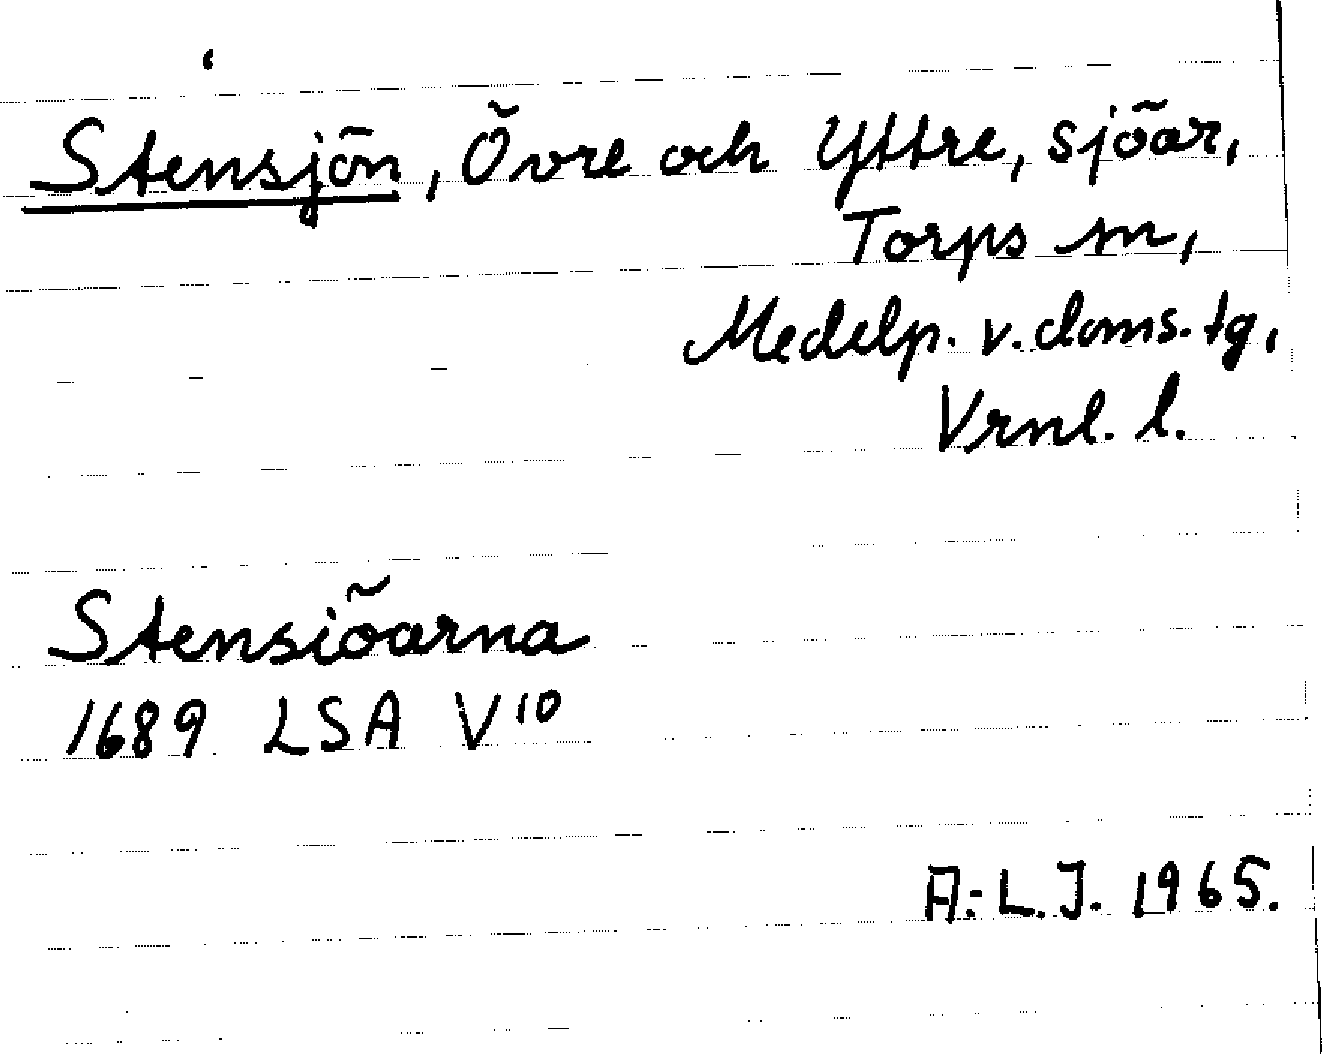 Stensjön, Övre och Yttre, sjöar,
Torps sn,
Medelp. v. doms. tg,
Vrnl. l.
Stensiöarna
1689 LSA V¹⁰
A.-L.J. 1965.